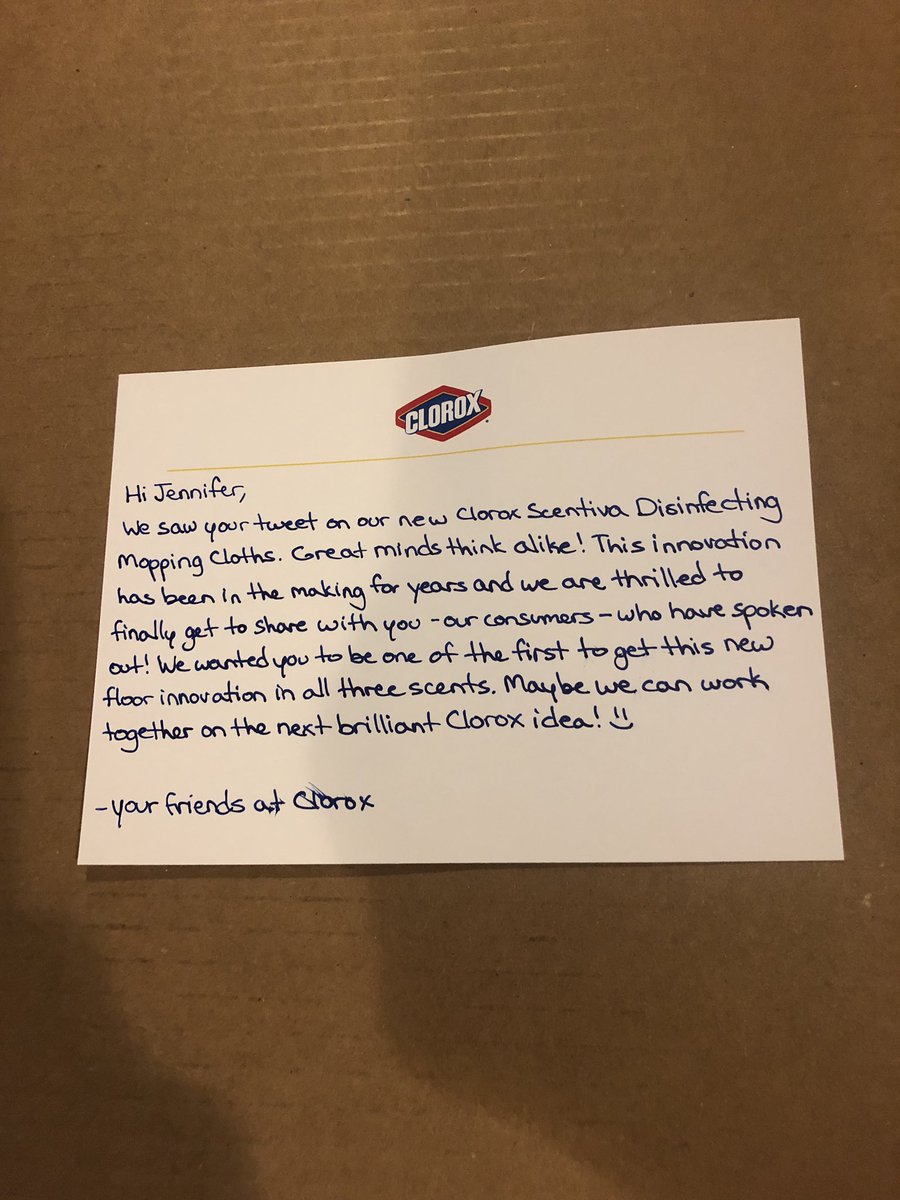 CLOROX
Hi Jennifer,
We saw your tweet on our new Clorox Scentiva Disinfecting
Mopping Cloths. Great minds think alike! This innovation
has been in the making for years and we are thrilled to
finally get to share with you - our consumers - who have spoken
out! We wanted you to be one of the first to get this new
floor innovation in all three scents. Maybe we can work
together on the next brilliant Clorox idea! :)
- your friends at Clorox